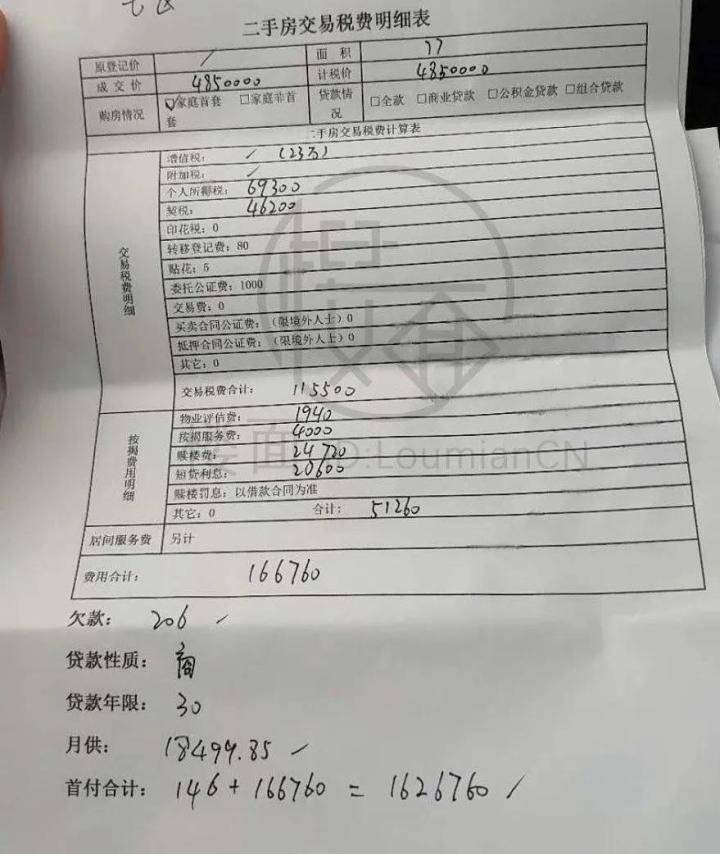 二手房交易税费明细表
原登记价 / 面 积 77
成 交 价 4850000 计税价 4850000
购房情况 ☑家庭首套 □家庭非首套 贷款情况 □全款 □商业贷款 □公积金贷款 □组合贷款
二手房交易税费计算表
交易税费明细
增值税: / (23万)
附加税: /
个人所得税: 69300
契税: 46200
印花税:0
转移登记费:80
贴花:5
委托公证费:1000
交易费:0
买卖合同公证费:(限境外人士)0
抵押合同公证费:(限境外人士)0
其它:0
交易税费合计: 115500
按揭费用明细
物业评估费: 1940
按揭服务费: 4000
赎楼费: 24720
短贷利息: 20600
赎楼罚息:以借款合同为准
其它:0 合计: 51260
居间服务费 另计
费用合计: 166760
欠款: 206
贷款性质: 商
贷款年限: 30
月供: 18499.85
首付合计: 146 + 166760 = 1626760
楼面 ID:LoumianCN